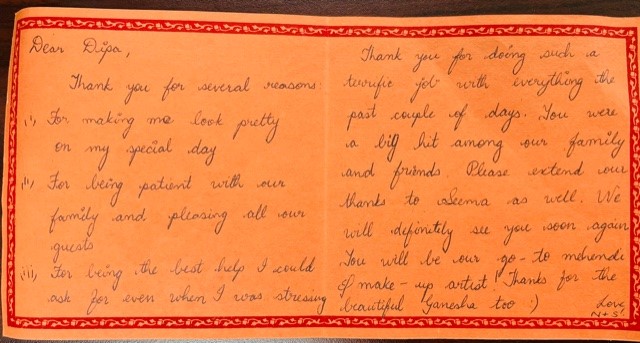 Dear Dipa,
Thank you for several reasons:
i) For making me look pretty
on my special day
ii) For being patient with our
family and pleasing all our
guests
iii) For being the best help I could
ask for even when I was stressing
Thank you for doing such a
terrific job with everything the
past couple of days. You were
a big hit among our family
and friends. Please extend our
thanks to Seema as well. We
will definitely see you soon again
You will be our go-to mehendi
& make-up artist! Thanks for the
beautiful Ganesha too :)
Love,
N+S!